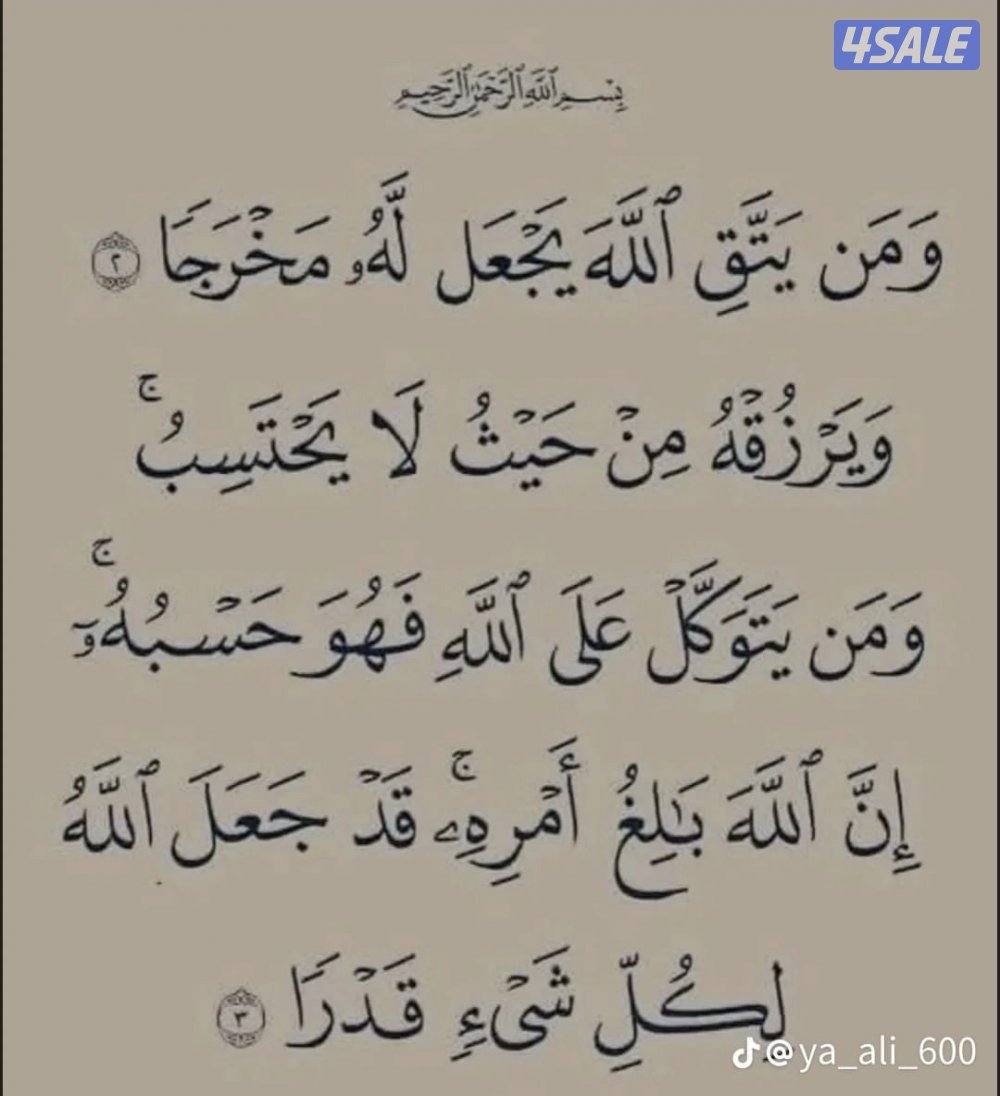 4SALE
بِسْمِ ٱللَّهِ ٱلرَّحْمَٰنِ ٱلرَّحِيمِ
وَمَن يَتَّقِ ٱللَّهَ يَجْعَل لَّهُۥ مَخْرَجًا ٢
وَيَرْزُقْهُ مِنْ حَيْثُ لَا يَحْتَسِبُ ۚ
وَمَن يَتَوَكَّلْ عَلَى ٱللَّهِ فَهُوَ حَسْبُهُۥٓ ۚ
إِنَّ ٱللَّهَ بَٰلِغُ أَمْرِهِۦ ۚ قَدْ جَعَلَ ٱللَّهُ
لِكُلِّ شَىْءٍ قَدْرًا ٣
@ya_ali_600